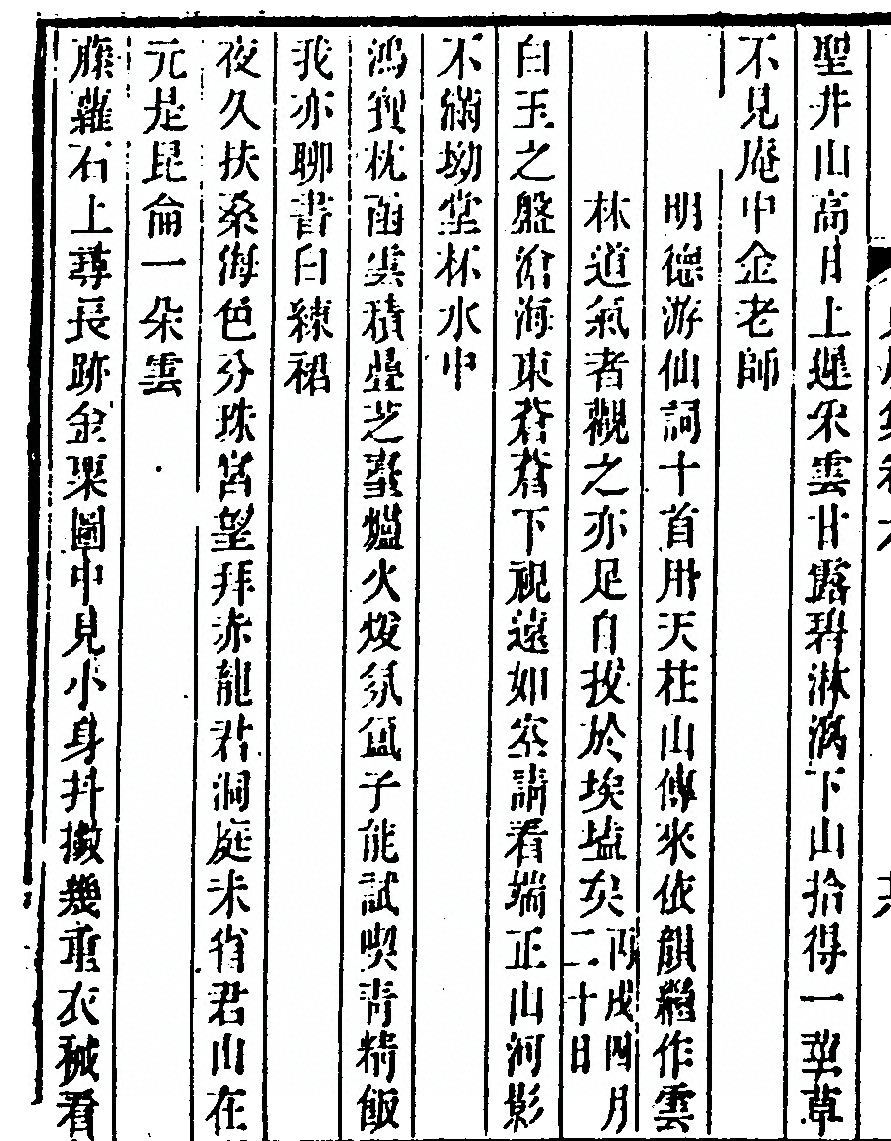 聖井山高日上遲采雲甘露碧淋漓下山拾得一莖草
不見庵中金老師
明德游仙詞十首用天柱山傳來依韻繼作雲
林道氣者觀之亦足自拔於埃壒矣丙戌四月二十日
白玉之盤滄海東蒼蒼下視遠如空請看端正山河影
不滿坳堂杯水中
鴻寶枕函雲積疊芝臺爐火煖氛氳子能試喫青精飯
我亦聊書白練裙
夜久扶桑海色分珠宮望拜赤龍君洞庭未省君山在
元是昆侖一朵雲
藤蘿石上尋長跡金粟圖中見小身抖擻幾重衣祴看